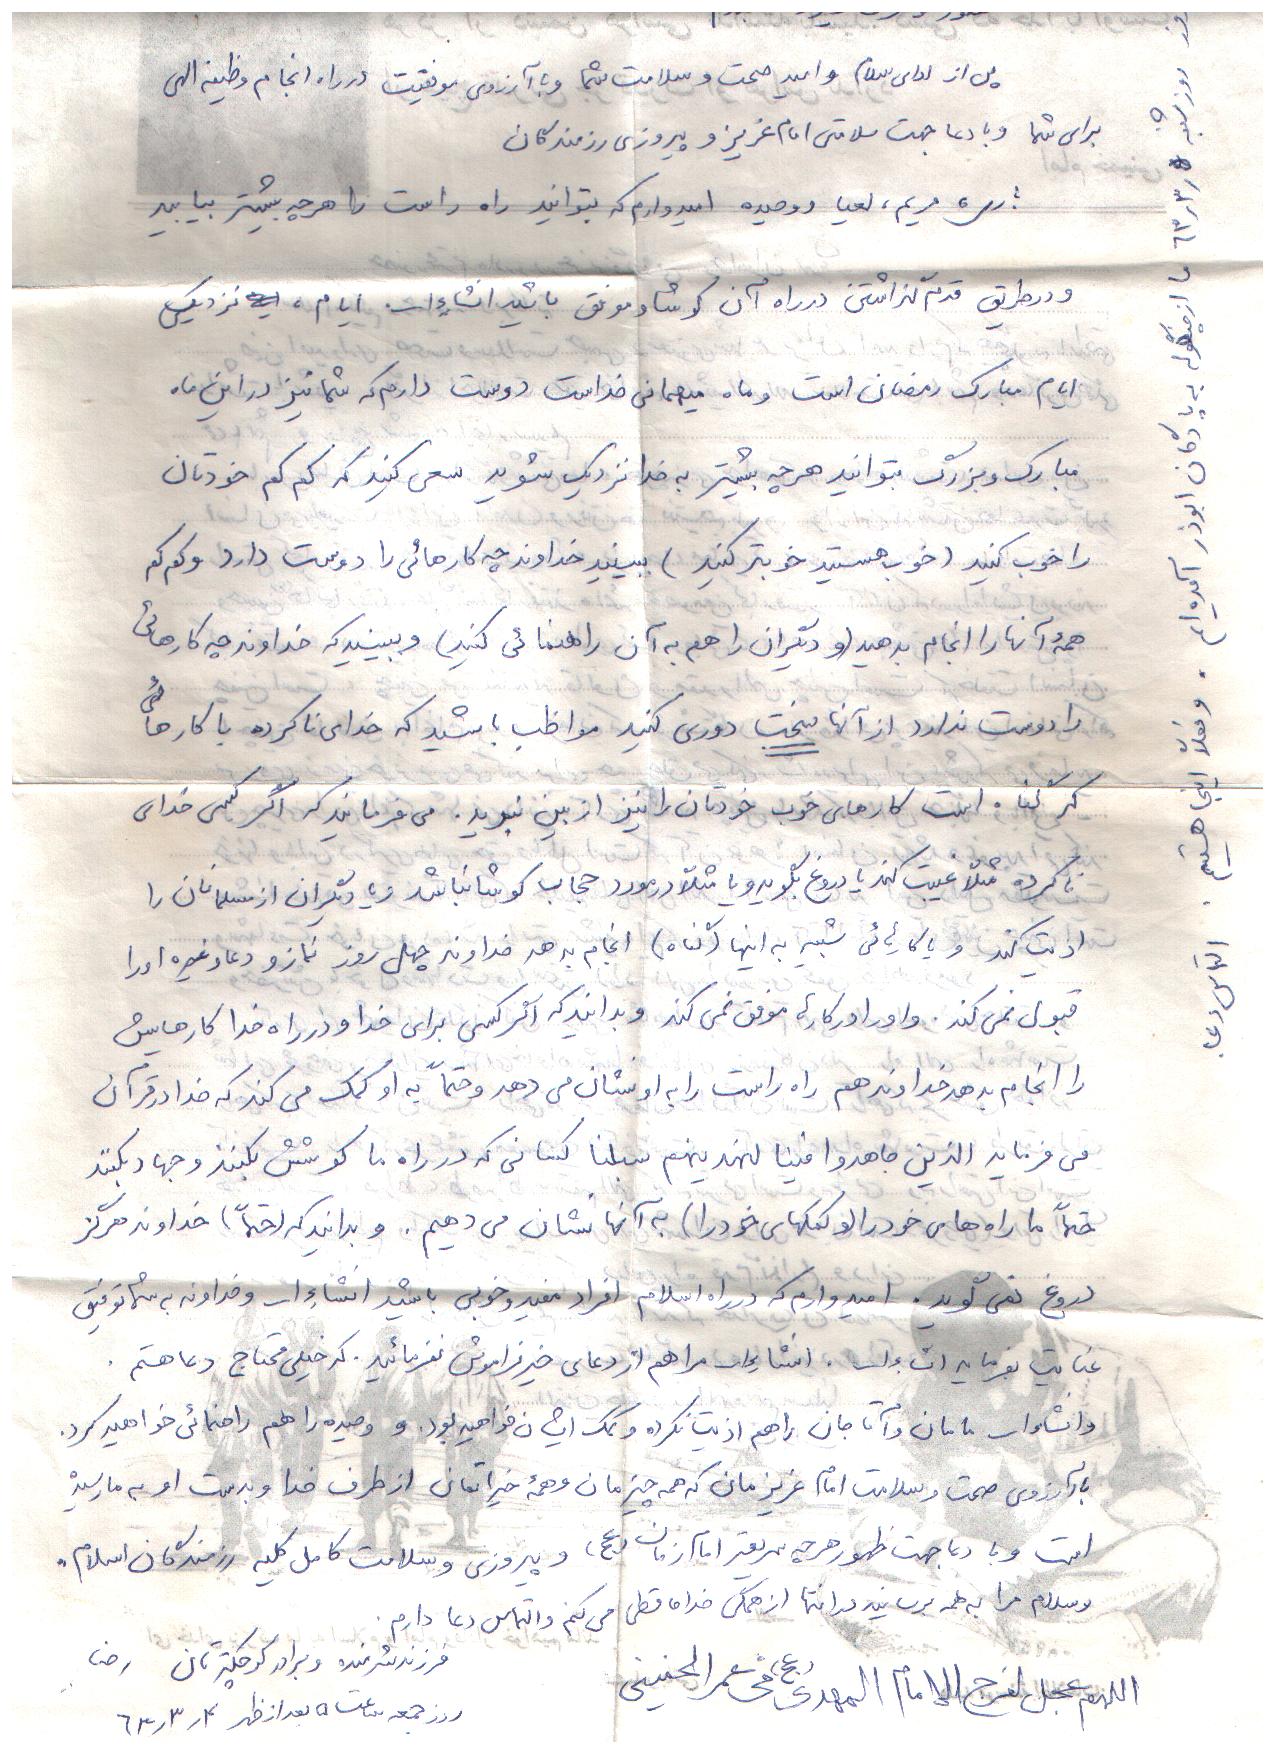 پس از ادای سلام و امید صحت و سلامت شما و با آرزوی موفقیت در راه انجام وظیفه الهی
برای شما و با دعا جهت سلامتی امام عزیز و پیروزی رزمندگان
مریم، لعیا و وحیده امیدوارم که بتوانید راه راست را هرچه بیشتر بیابید
و در طریق قدم گذاشتن در راه آن کوشا و موفق باشید انشاءالله. ایام، نزدیکی
ایام مبارک رمضان است و ماه میهمانی خداست دوست دارم که شما نیز در این ماه
مبارک و بزرگ بتوانید هرچه بیشتر به خدا نزدیک شوید سعی کنید که کم کم خودتان
را خوب کنید (خوب هستید خوبتر کنید) ببینید خداوند چه کارهائی را دوست دارد و کم کم
همهٔ آنها را انجام بدهید (و دیگران را هم به آن راهنمائی کنید) و ببینید که خداوند چه کارهائی
را دوست ندارد از آنها سخت دوری کنید مواظب باشید که خدای ناکرده با کارهائی
که گناه است کارهای خوب خودتان را نیز از بین نبرید. می فرمایند که اگر کسی خدای
ناکرده مثلاً غیبت کند یا دروغ بگوید و یا مثلاً در مورد حجاب کوشا نباشد و یا دیگران از مسلمانان را
اذیت کند و یا کارهائی شبیه به اینها (گناه) انجام بدهد خداوند چهل روز نماز و دعا و غیره او را
قبول نمی کند. و او را در کارها موفق نمی کند و بدانید که اگر کسی برای خدا و در راه خدا کارهایش
را انجام بدهد خداوند هم راه راست را به او نشان می دهد و حتماً به او کمک می کند که خدا در قرآن
می فرماید الذین جاهدوا فینا لنهدینهم سبلنا کسانی که در راه ما کوشش بکنند و جهاد بکنند
حتماً ما راه های خود را (و کمکهای خود را) به آنها نشان می دهیم. و بدانید که (حتماً) خداوند هرگز
دروغ نمی گوید. امیدوارم که در راه اسلام افراد مفید و خوبی باشید انشاءالله و خداوند به شما توفیق
عنایت بفرماید انشاءالله. انشاءالله مرا هم از دعای خیر فراموش نفرمائید. که خیلی محتاج دعا هستم.
و انشاءالله مامان و آقاجان را هم اذیت نکرده و کمک ایشان خواهید بود. و وحیده را هم راهنمائی خواهید کرد.
با آرزوی صحت و سلامت امام عزیزمان که همه چیزمان و همهٔ خیراتمان از طرف خدا و بدست او به ما رسیده
است و با دعا جهت ظهور هرچه سریعتر امام زمان (عج) و پیروزی و سلامت کامل کلیه رزمندگان اسلام.
و سلام مرا به همه برسانید در انتها از همگی خداحافظی می کنم و التماس دعا دارم.
فرزند شرمنده و برادر کوچکترتان رضا
اللهم عجل لفرج الامام المهدی (عج) فی عمر الخمینی
روز جمعه ساعت ۵ بعد از ظهر ۶۳/۳/۴
روز شنبه ۶۳/۳/۵ ما از جنگوله به پادگان ابوذر آمده ایم. و فعلاً اینجا هستیم. التماس دعا